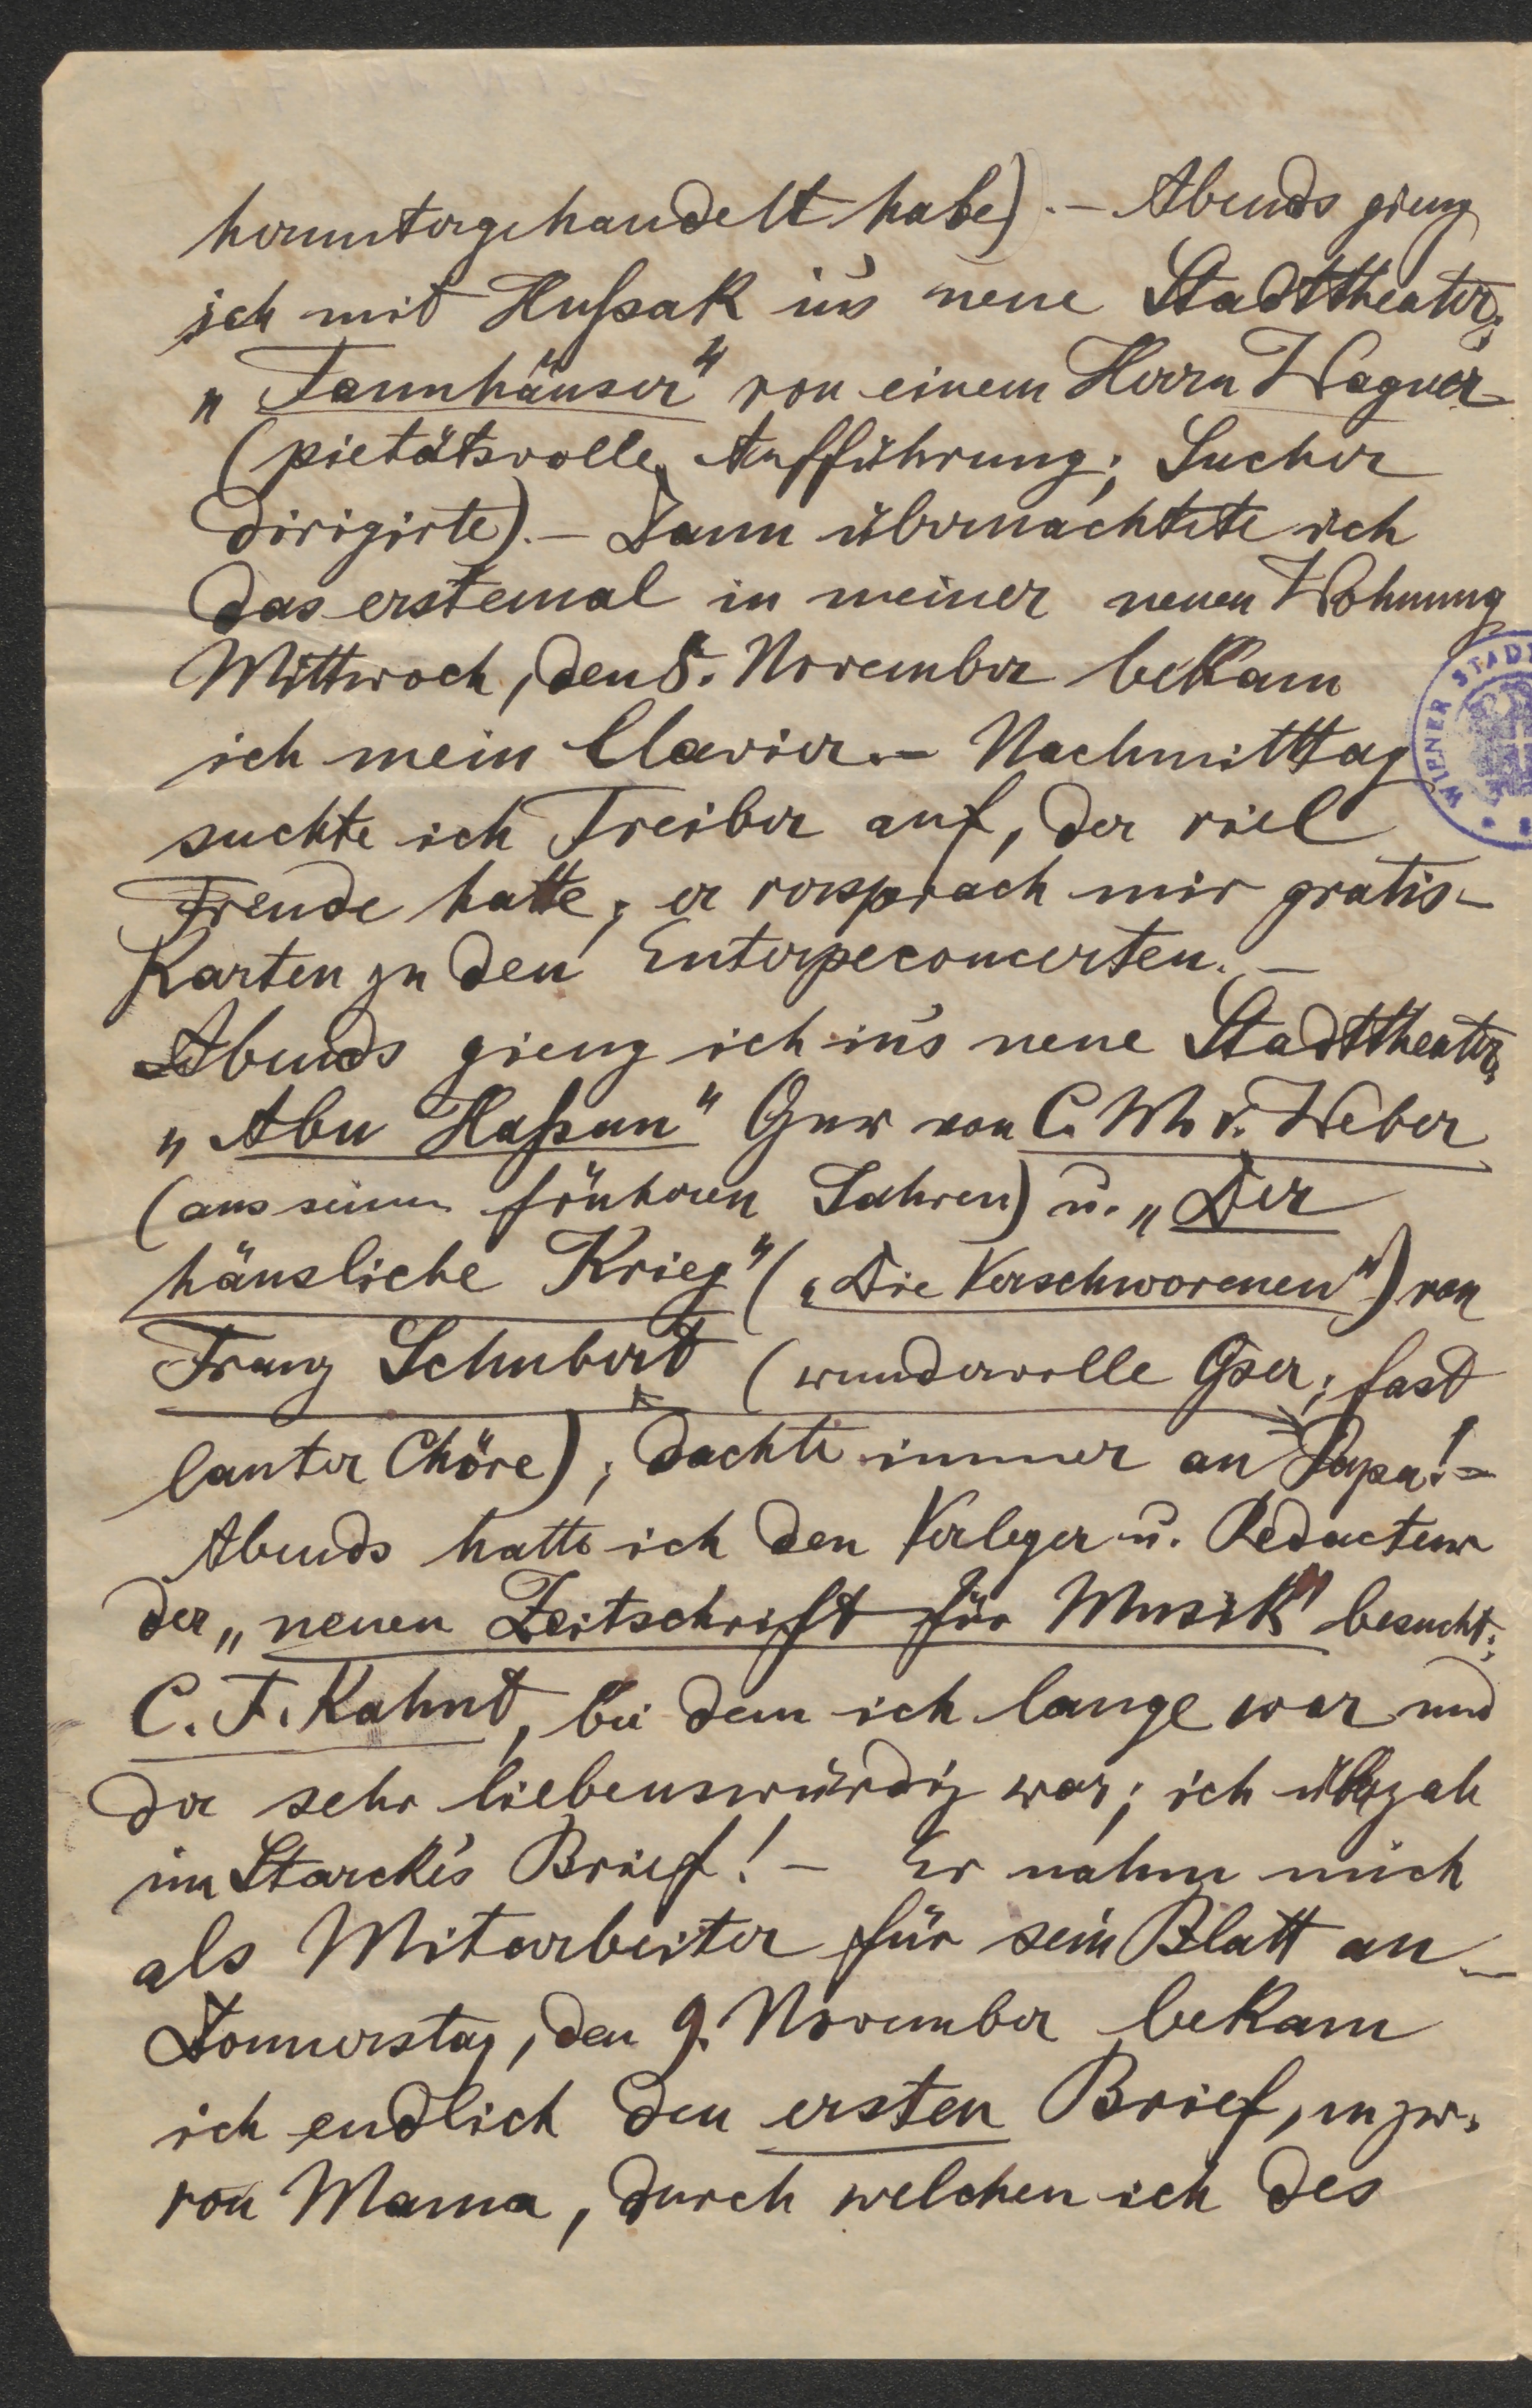 heruntergehandelt habe). – Abends gieng
ich mit Hußak in's neue Stadttheater;
„Tannhäuser" von einem Herrn Wagner
(pietätsvolle Aufführung; Sucher
dirigirte). – Dann übernachtete ich
das erstemal in meiner neuen Wohnung
Mittwoch, den 8. November bekam
ich mein Clavier. – Nachmittag
suchte ich Treiber auf, der viel
Freude hatte; er versprach mir gratis-
Karten zu den Euterpeconcerten. –
Abends gieng ich in's neue Stadttheater;
„Abu Haßan" Oper von C. M. v. Weber
(aus seinen früheren Jahren) u. „Der
häusliche Krieg" („Die Verschworenen") von
Franz Schubert (wundervolle Oper; fast
lauter Chöre); dachte immer an Papa! –
Abends hatte ich den Verleger u. Redacteur
der „neuen Zeitschrift für Musik" besucht;
C. F. Kahnt, bei dem ich lange war und
der sehr liebenswürdig war; ich übergab
im Starck's Brief! – Er nahm mich
als Mitarbeiter für sein Blatt an –
Donnerstag, den 9. November bekam
ich endlich den ersten Brief, u. zw.
von Mama, durch welchen ich des
WIENER STAD